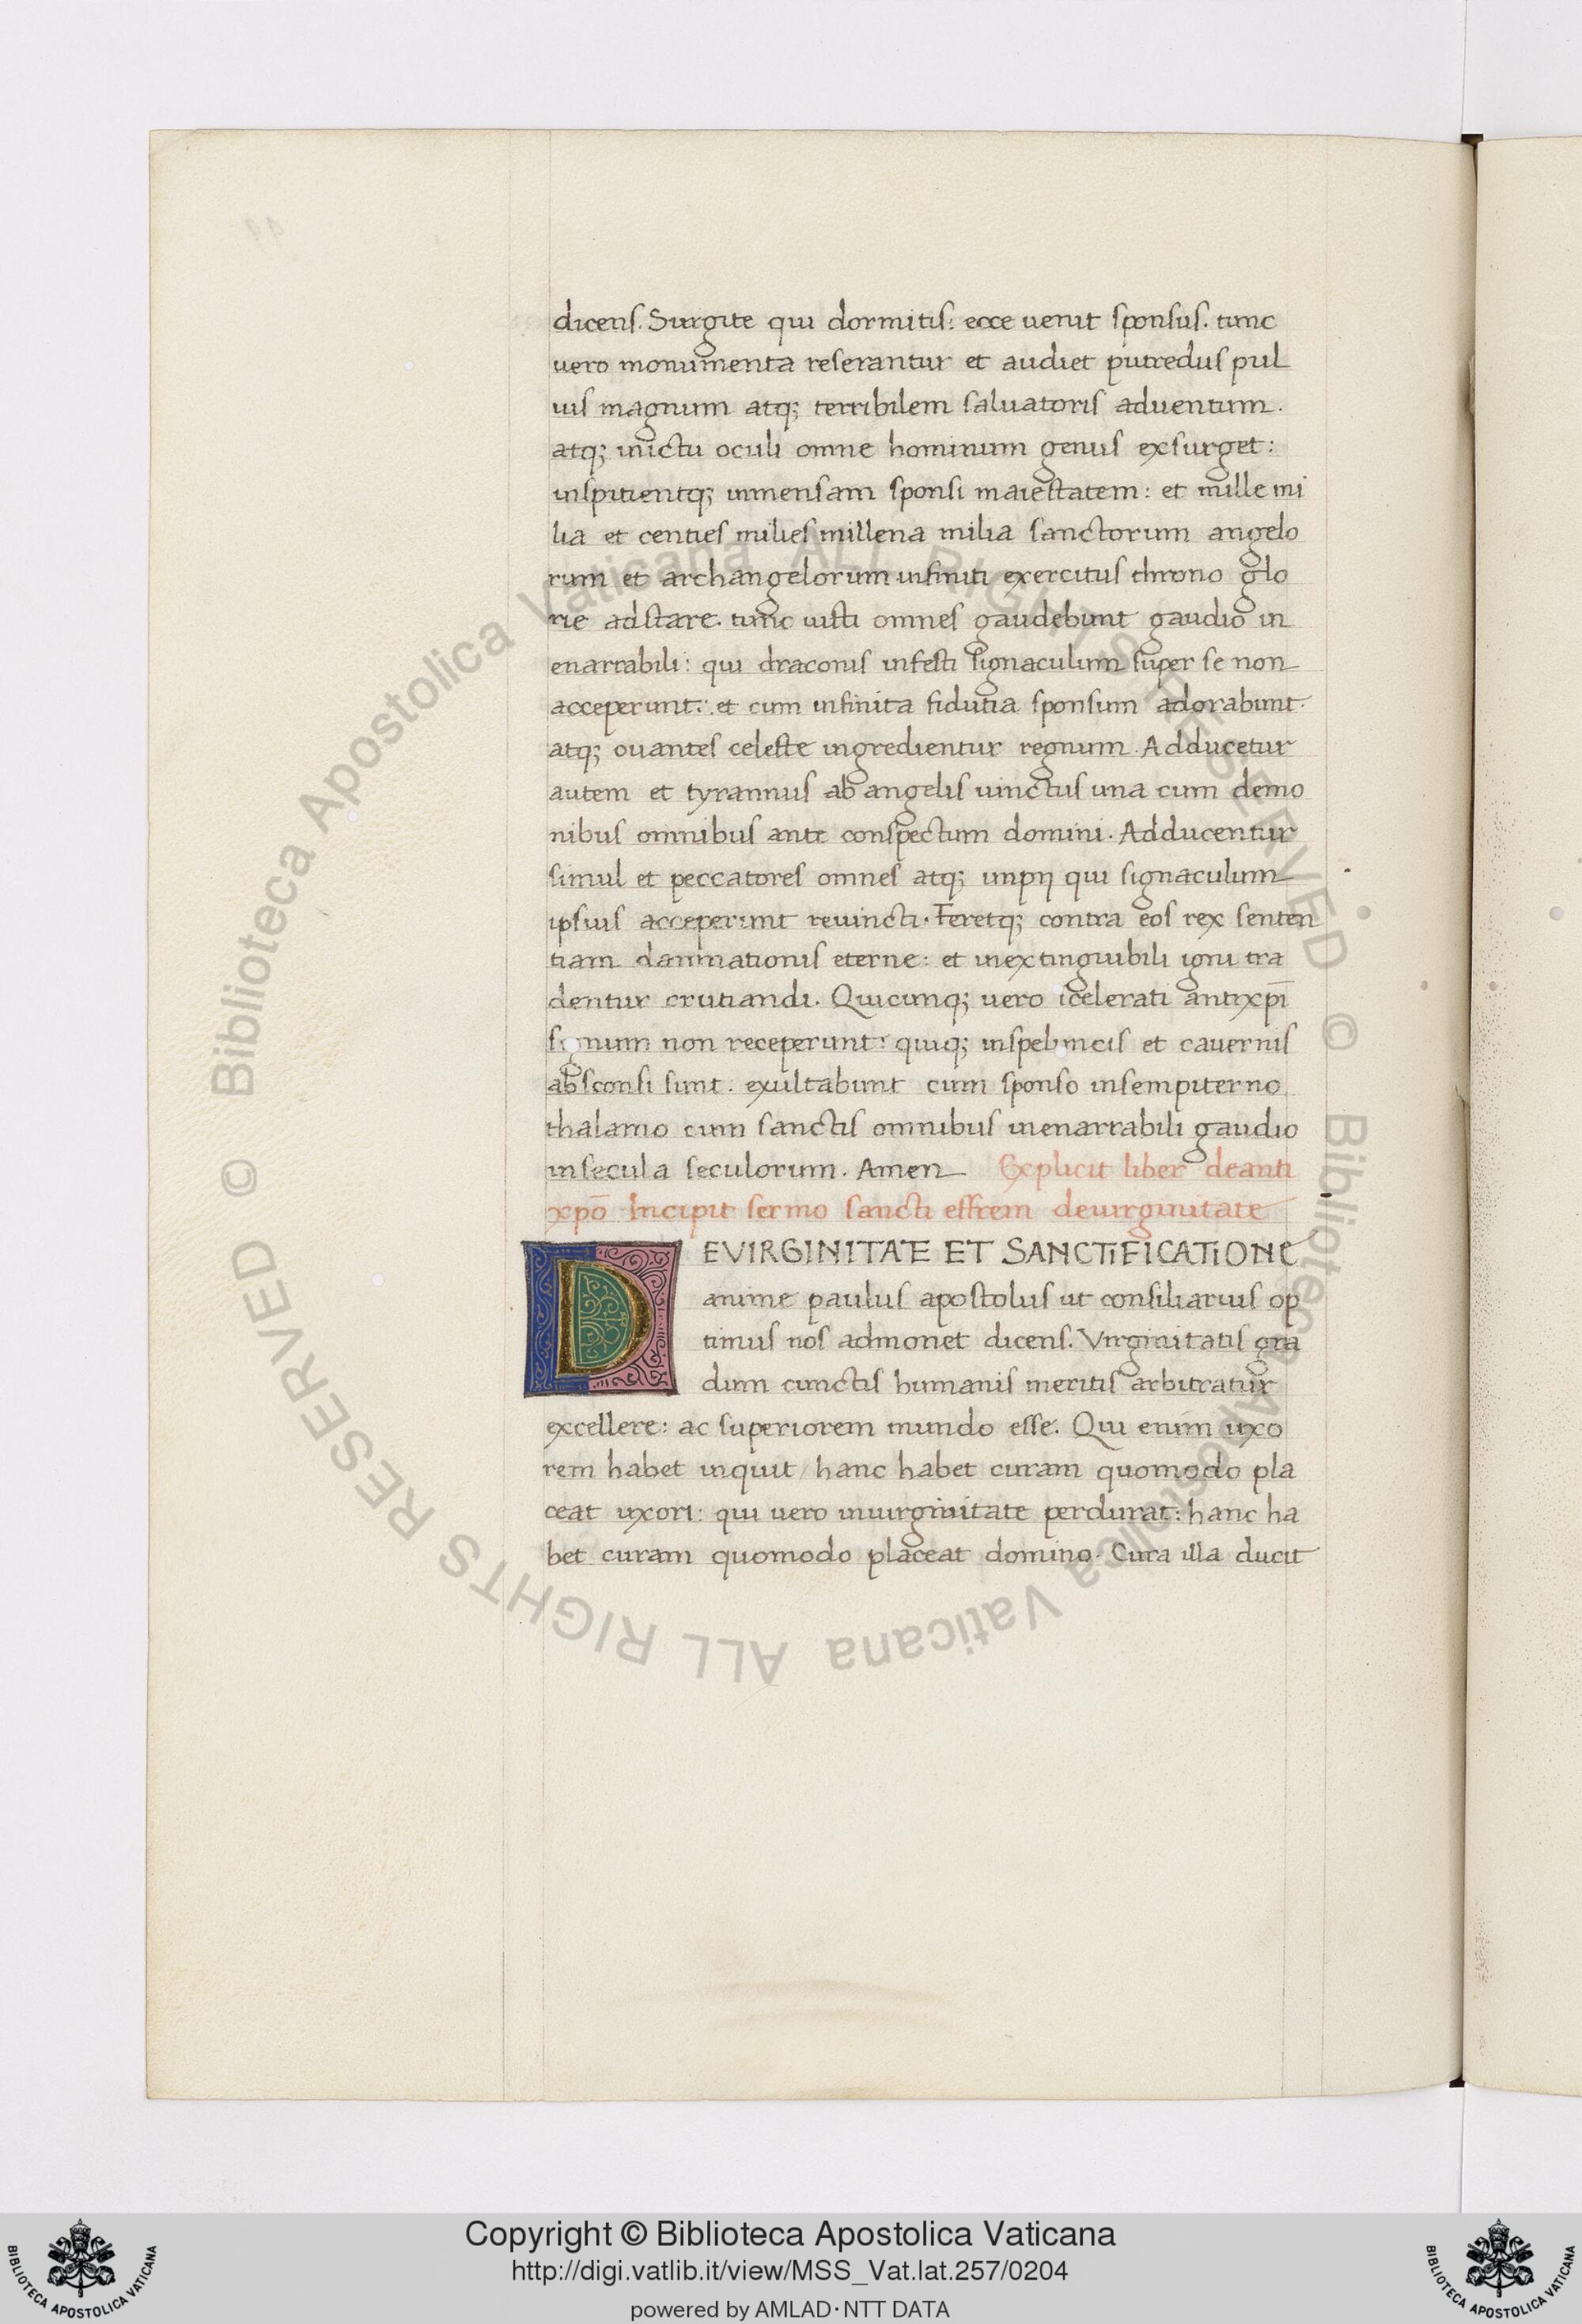 dicens. Surgite qui dormitis: ecce uenit sponsus. tunc
uero monumenta reserantur et audiet putredus pul
uis magnum atq; terribilem saluatoris aduentum.
atq; in ictu oculi omne hominum genus exsurget:
inspitientq; inmensam sponsi maiestatem: et mille mi
lia et centies milies millena milia sanctorum angelo
rum et archangelorum infiniti exercitus throno glo
rie adstare. tunc iusti omnes gaudebunt gaudio in
enarrabili: qui draconis infesti signaculum super se non
acceperunt: et cum infinita fidutia sponsum adorabunt.
atq; ouantes celeste ingredientur regnum. Adducetur
autem et tyrannus ab angelis uinctus una cum demo
nibus omnibus ante conspectum domini. Adducentur
simul et peccatores omnes atq; impij qui signaculum
ipsius acceperunt reuincti. Feretq; contra eos rex senten
tiam damnationis eterne: et inextinguibili igni tra
dentur crutiandi. Quicunq; uero scelerati antixp̄i
signum non receperunt: quiq; in speluncis et cauernis
absconsi sunt. exultabunt cum sponso in sempiterno
thalamo cum sanctis omnibus inenarrabili gaudio
in secula seculorum. Amen Explicit liber de anti
xpō Incipit sermo sancti effrem de uirginitate
DE VIRGINITATE ET SANCTIFICATIONE
anime paulus apostolus ut consiliarius op
timus nos admonet dicens. Virginitatis gra
dum cunctis humanis meritis arbitratur
excellere: ac superiorem mundo esse. Qui enim uxo
rem habet inquit / hanc habet curam quomodo pla
ceat uxori: qui uero in uirginitate perdurat: hanc ha
bet curam quomodo placeat domino. Cura illa ducit
© Biblioteca Apostolica Vaticana ALL RIGHTS RESERVED
© Biblioteca Apostolica Vaticana ALL RIGHTS RESERVED
Copyright © Biblioteca Apostolica Vaticana
http://digi.vatlib.it/view/MSS_Vat.lat.257/0204
powered by AMLAD·NTT DATA
BIBLIOTECA APOSTOLICA VATICANA
BIBLIOTECA APOSTOLICA VATICANA